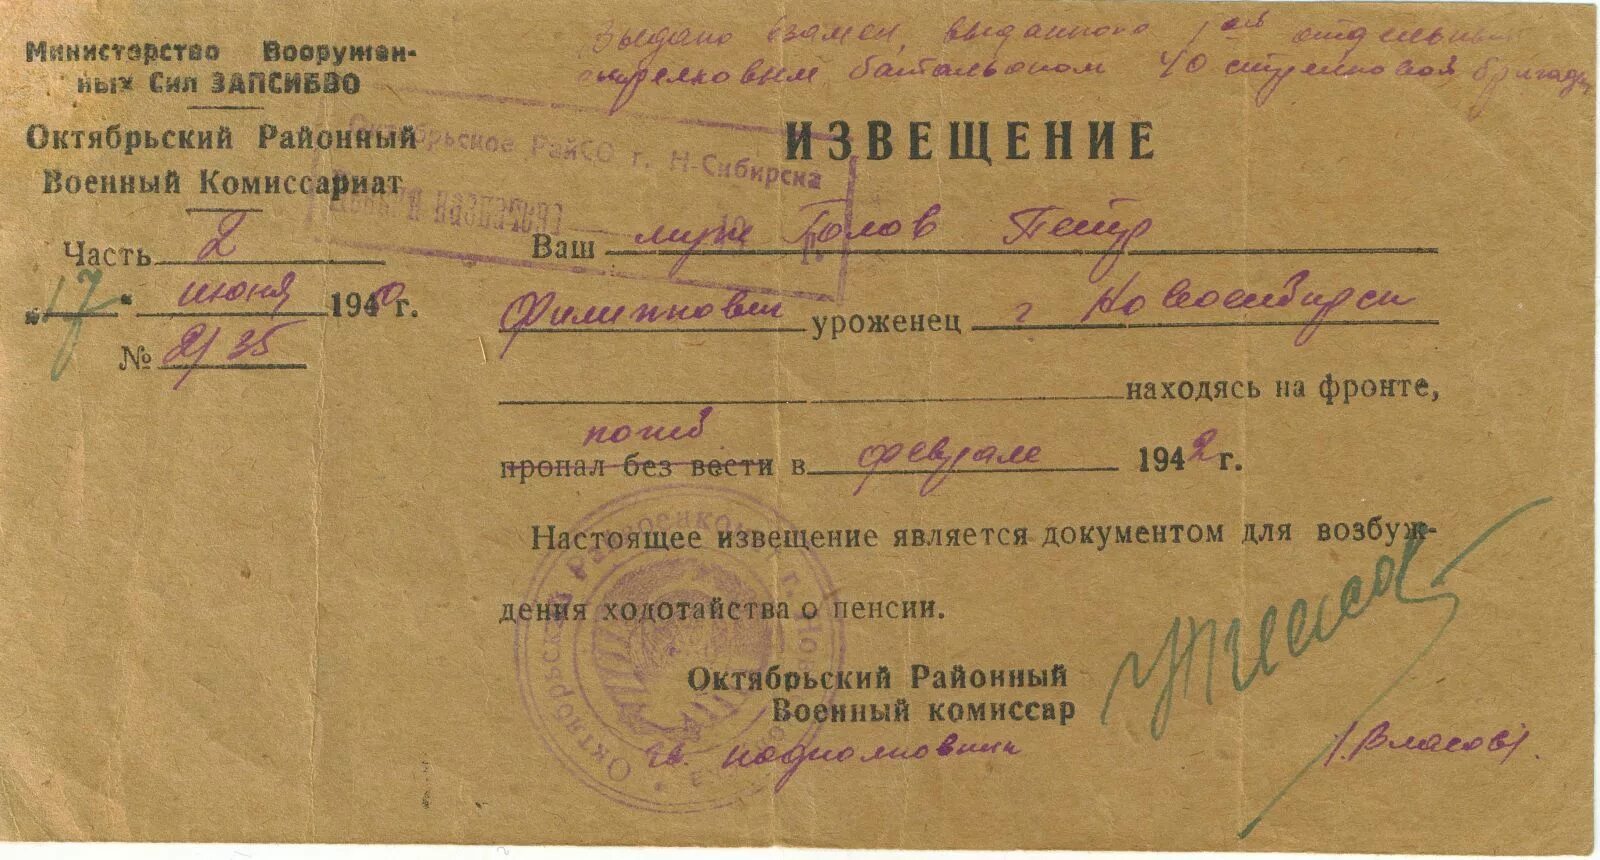 Выдано взамен выданного 1ой отдельным
стрелковым батальоном 40 стрелковой бригады
Министерство Вооружен-
ных Сил ЗАПСИБВО
Октябрьский Районный
Военный Комиссариат
Часть 2
„17“ июня 1940 г.
№ 2/35
Октябрьское РайСО г. Н-Сибирска
19 г.
ИЗВЕЩЕНИЕ
Ваш муж Голов Петр
Филиппович уроженец г Новосибирск
находясь на фронте,
погиб
пропал без вести в феврале 1942 г.
Настоящее извещение является документом для возбуж-
дения ходотайства о пенсии.
Октябрьский Районный
Военный комиссар
гв. подполковник
(Власов)
Октябрьский Райвоенком г. Нов